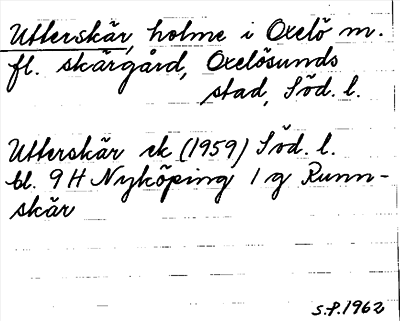 Utterskär, holme i Oxelö m.
fl. skärgård, Oxelösunds
stad, Söd. l.
Utterskär ek (1959) Söd. l.
bl. 9 H Nyköping 1 g Runn-
skär
S.P. 1962